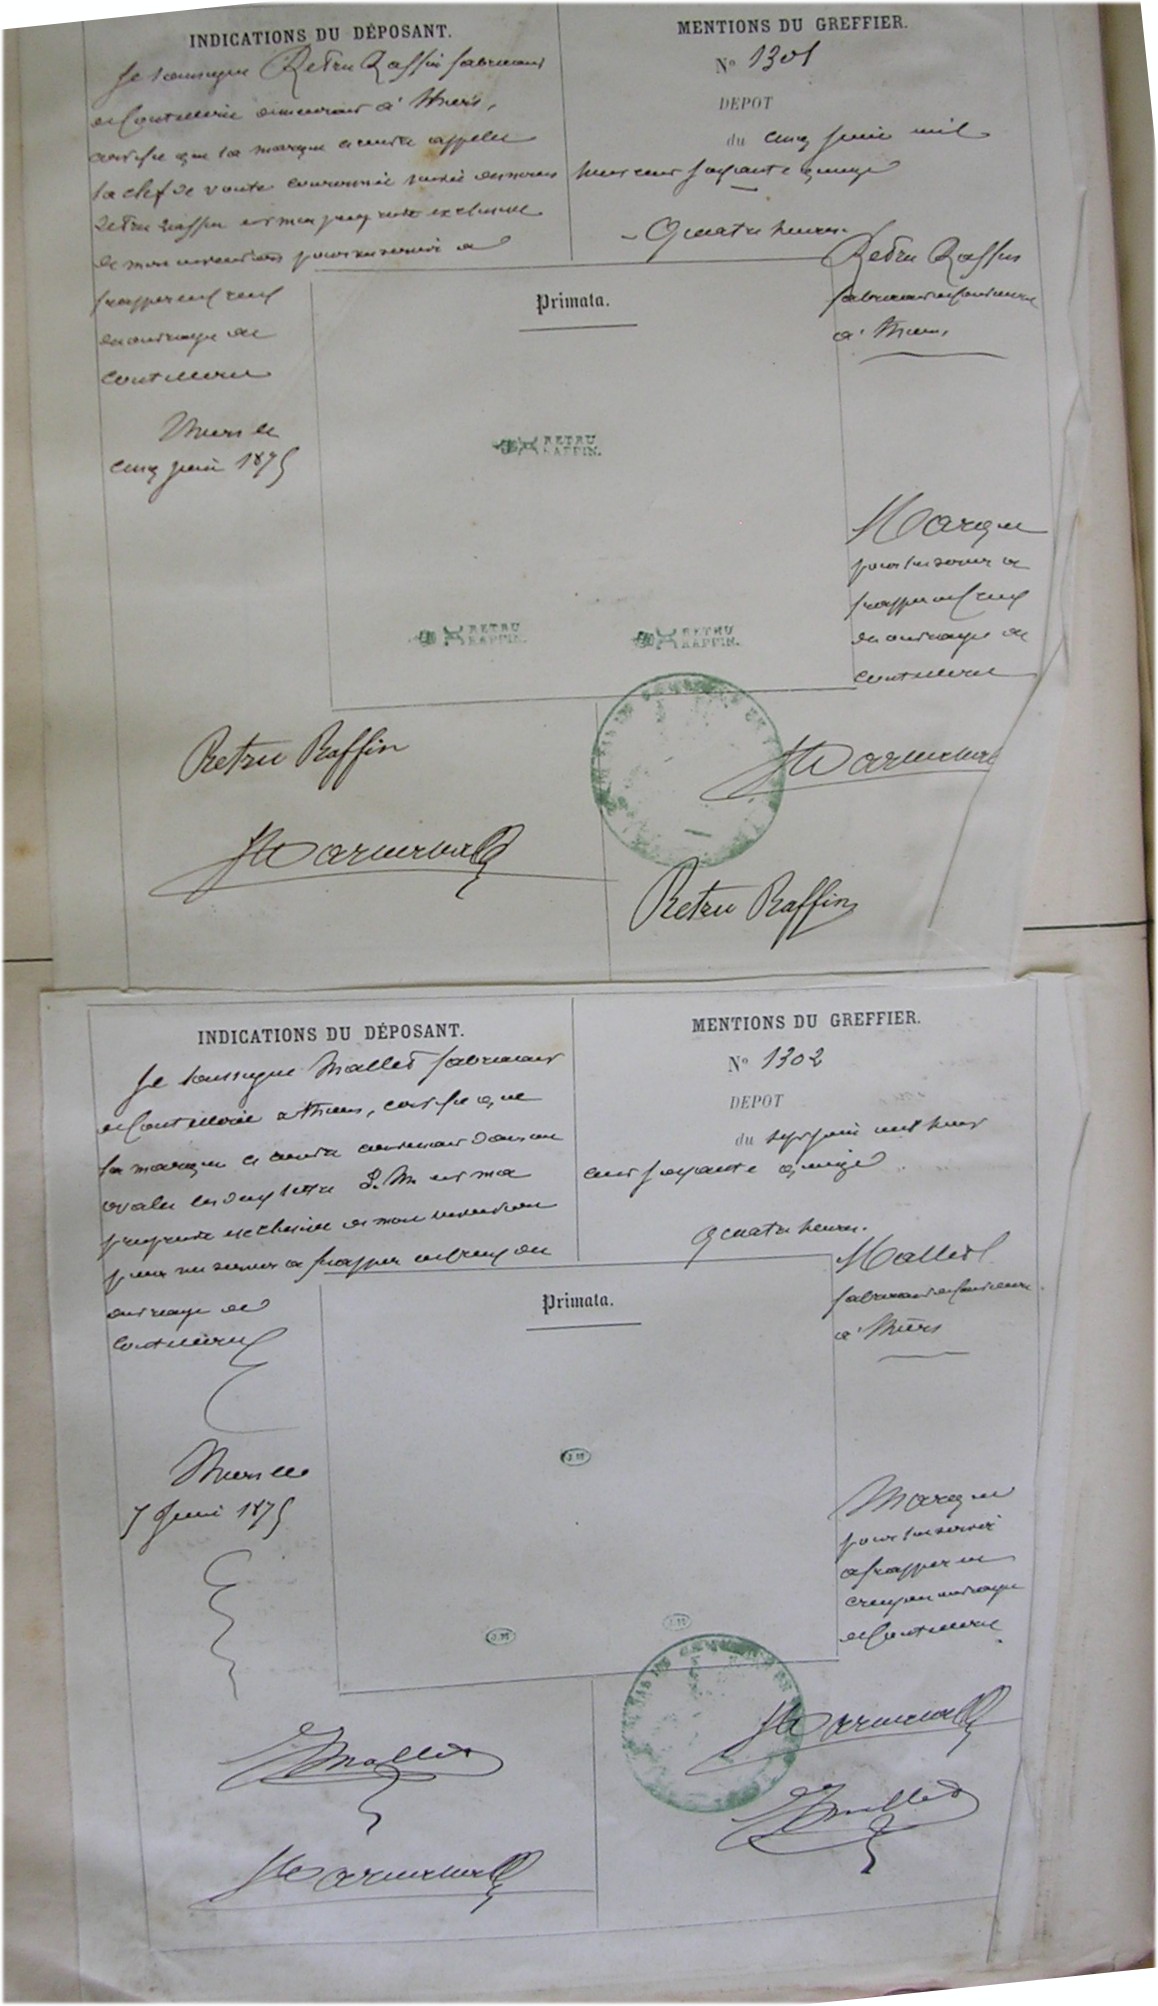 INDICATIONS DU DÉPOSANT.
Je soussigné Retru Raffin fabricant
de Coutellerie demeurant à Thiers,
certifie que la marque ci contre appelée
la clef de voute couronnée suivie des noms
Retru Raffin est ma propriété exclusive
de mon invention pour me servir à
frapper en creux
des ouvrages de
coutellerie
Thiers le
cinq juin 1875
MENTIONS DU GREFFIER.
No 1301
DEPOT
du cinq juin mil
huit cent soixante quinze
Quatre heures.
Retru Raffin
fabricant de Coutellerie
à Thiers,
Primata.
RETRU
RAFFIN.
RETRU
RAFFIN.
RETRU
RAFFIN.
Marque
pour lui servir à
frapper en creux
des ouvrages de
coutellerie
Retru Raffin
Retru Raffin
INDICATIONS DU DÉPOSANT.
Je soussigné Mallet fabricant
de Coutellerie à Thiers, certifie que
la marque ci contre contenant dans un
ovale les deux lettres J. M est ma
propriété exclusive de mon invention
pour me servir à frapper en creux des
ouvrages de
Coutellerie
Thiers le
7 Juin 1875
MENTIONS DU GREFFIER.
No 1302
DEPOT
du sept juin mil huit
cent soixante quinze
quatre heures.
Mallet
fabricant de Coutellerie
à Thiers
Primata.
J.M
J.M
J.M
Marque
pour lui servir
à frapper en
creux des ouvrages
de Coutellerie
Mallet
Mallet